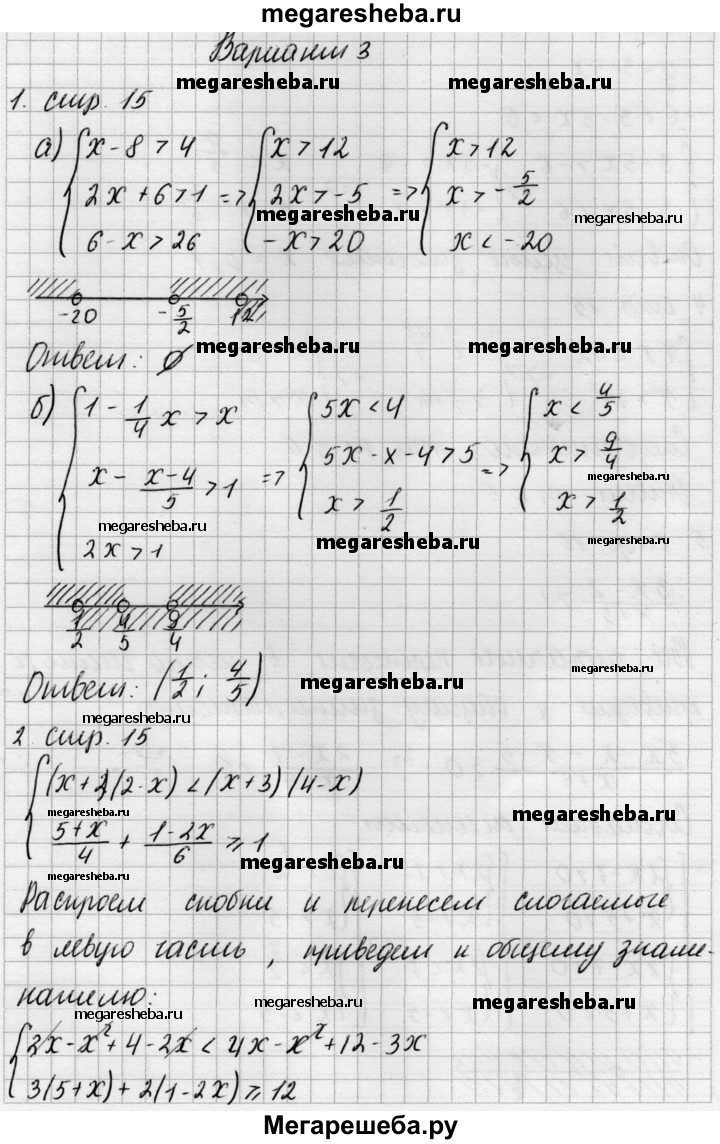 megaresheba.ru
Вариант 3
megaresheba.ru megaresheba.ru
1. стр. 15
а) { x - 8 > 4 { x > 12 { x > 12
2x + 6 > 1 => 2x > -5 => x > -5/2
megaresheba.ru megaresheba.ru
6 - x > 26 -x > 20 x < -20
-20 -5/2 12
Ответ: ∅ megaresheba.ru megaresheba.ru
б) { 1 - 1/4 x > x { 5x < 4 { x < 4/5
x - (x-4)/5 > 1 => 5x - x - 4 > 5 => x > 9/4
megaresheba.ru
2x > 1 x > 1/2 x > 1/2
megaresheba.ru megaresheba.ru
megaresheba.ru
1/2 4/5 9/4
Ответ: (1/2; 4/5) megaresheba.ru megaresheba.ru
megaresheba.ru
2. стр. 15
{ (x+2)(2-x) < (x+3)(4-x)
megaresheba.ru megaresheba.ru
(5+x)/4 + (1-2x)/6 ⩾ 1
megaresheba.ru megaresheba.ru
Раскроем скобки и перенесем слогаемые
в левую часть, приведем к общему знаме-
нателю:
megaresheba.ru megaresheba.ru megaresheba.ru
{ 2x - x² + 4 - 2x < 4x - x² + 12 - 3x
3(5+x) + 2(1-2x) ⩾ 12
Мегарешеба.ру